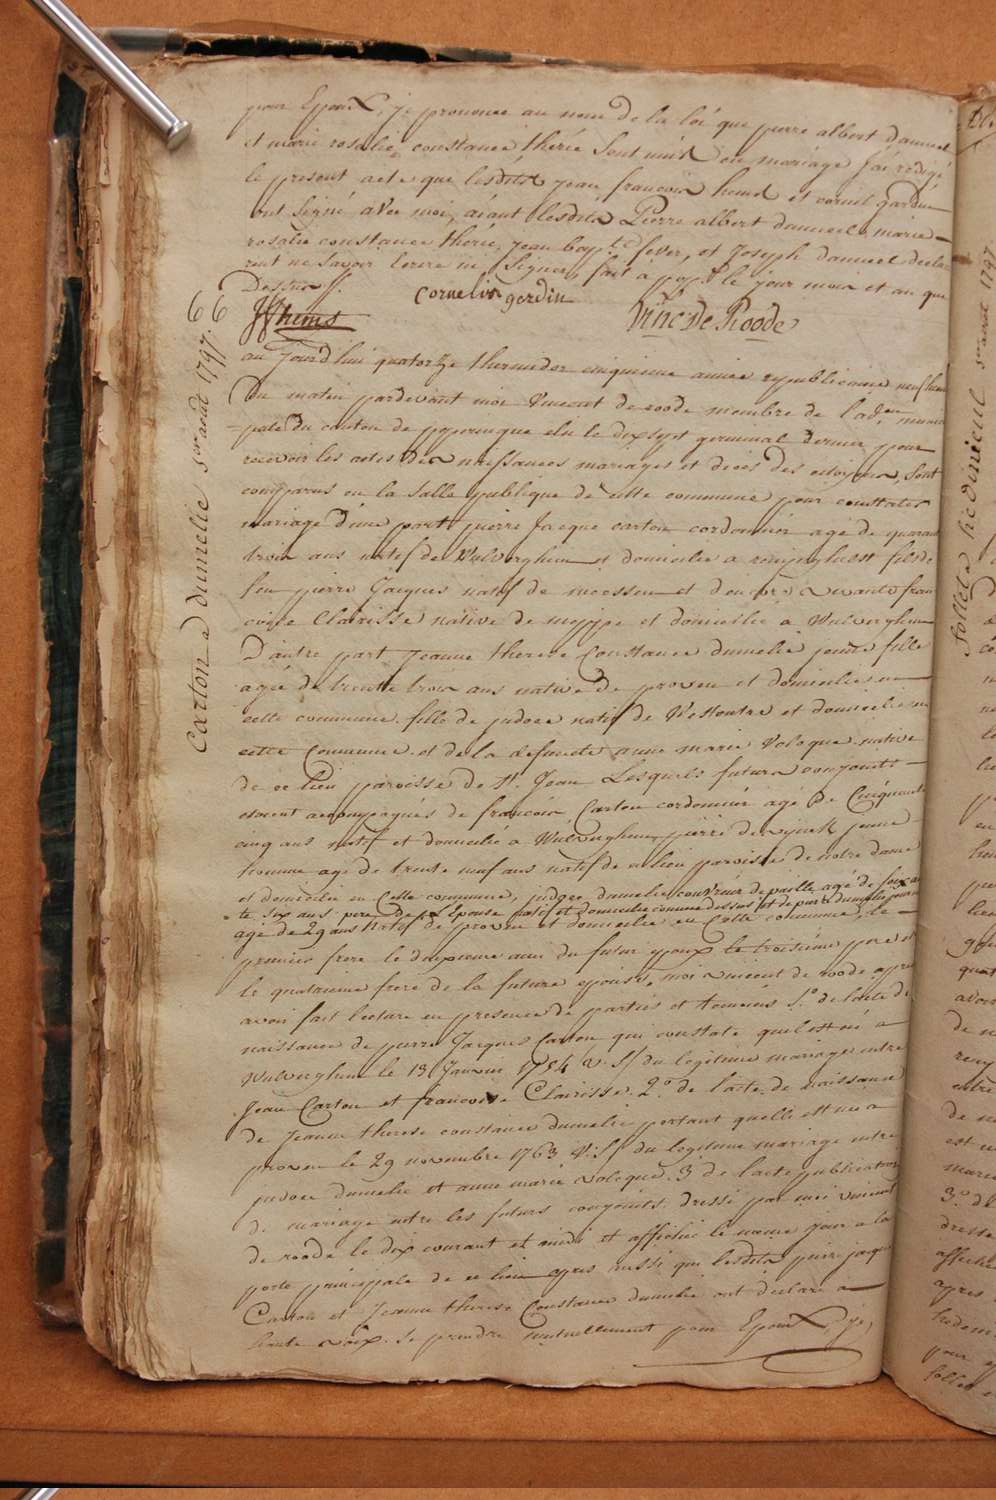 pour Epoux, je prononce au nom de la loi que pierre albert damueel
et marie rosalie constance thérie sont unis en mariage j'ai rédigé
le present acte que lesdits jean francois hemd et corneil gardin
ont signé avec moi, aiant lesdits Pierre albert damueel, marie
rosalie constance thérie, jean bapte fever, et Joseph damueel decla
rent ne savoir ecrire ni signer, fait a pop le jour mois et an que
Dessus
cornelis gerdin
JFhems
Vinc De Roode
66
Carton a Dumelie 1er août 1797.
au Jourd'hui quatorze thermidor cinquieme année republicaine neuf heur
du matin pardevant moi Vincent de roode membre de l'aden munici
=pale du canton de poperingue elu le dix sept germinal dernier pour
recevoir les actes des naissances mariages et décès des citoyens, sont
comparus en la salle publique de cette commune pour constater
mariage d'une part pierre Jacque carton cordonnier agé de quarante
trois ans natif de Wulverghem et domicilié a reninghelst fils de
feu pierre Jacques natif de messem et de vivante fran
coise Clairisse native de et domiciliée a Wulverghem
D'autre part Jeanne therese Constance dumelie jeune fille
agée de trente trois ans native de proven et domiciliée en
cette commune fille de judoce natif de Westoutre et domicilié en
cette Commune et de la defuncte anne marie Voleque native
de ce lieu paroisse de St Jean Lesquels futurs conjoints
etoient accompagnés de francois Carton cordonnier agé de Cinquante
cinq ans natif et domicilié a Wulverghem, pierre dewynck jeune
homme agé de trente neuf ans natif de ce lieu paroisse de notre dame
et domicilié en Cette commune, judoce dumelie couvreur de paille agé de soixan
=te six ans pere de l'Epouse natif et domicilié comme dessus et de pierre dumelie
agé de 29 ans Natif de proven et domicilié en Cette commune, le
premier frere le deuxieme ami du futur epoux le troisième pere et
le quatrieme frere de la future epouse, moi vincent de roode apres
avoir fait lecture en presence de parties et temoins 1o de l'acte de
naissance de pierre Jacques Carton qui constate qu'il est né a
Wulverghem le 13 Janvier 1754 V. St du legitime mariage entre
Jean Carton et francoise Clairisse. 2o de l'acte de naissance
de Jeanne therese constance dumelie portant quelle est née a
proven le 29 novembre 1763 V. St du legitime mariage entre
judoce dumelie et anne marie voleque. 3 de l'acte publication
de mariage entre les futurs conjoints dressé par moi vincent
de roode le dix courant et midi et affiché le meme jour a la
porte principale de ce lieu apres aussi que lesdits pierre jaque
Carton et Jeanne therese Constance dumelie ont declaré a
haute voix se prendre mutuellement pour Epoux, je,
follet a hedinieul 1er août 1797